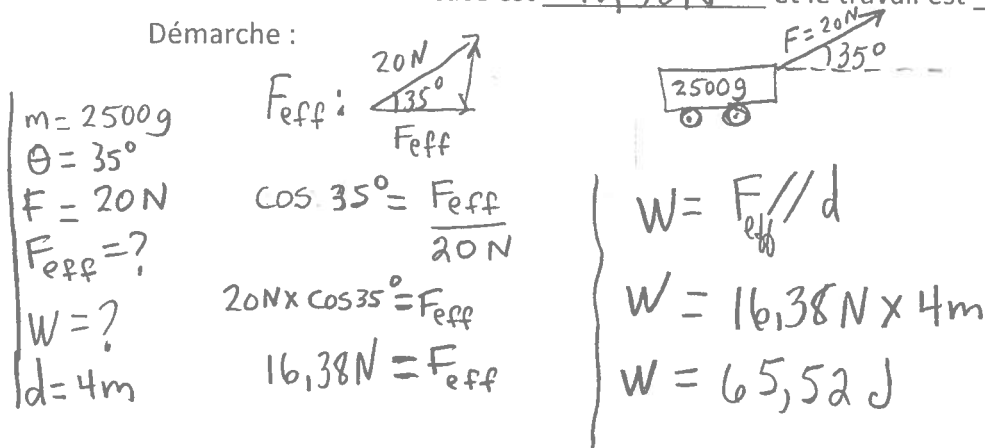 et le travail est
Démarche :
m= 2500g
θ = 35°
F = 20N
Feff =?
W = ?
d= 4m
Feff :
20N
35°
Feff
cos 35° = Feff / 20 N
20N x cos 35° = Feff
16,38N = Feff
F= 20N
35°
2500g
W = Feff // d
W = 16,38 N x 4m
W = 65,52 J